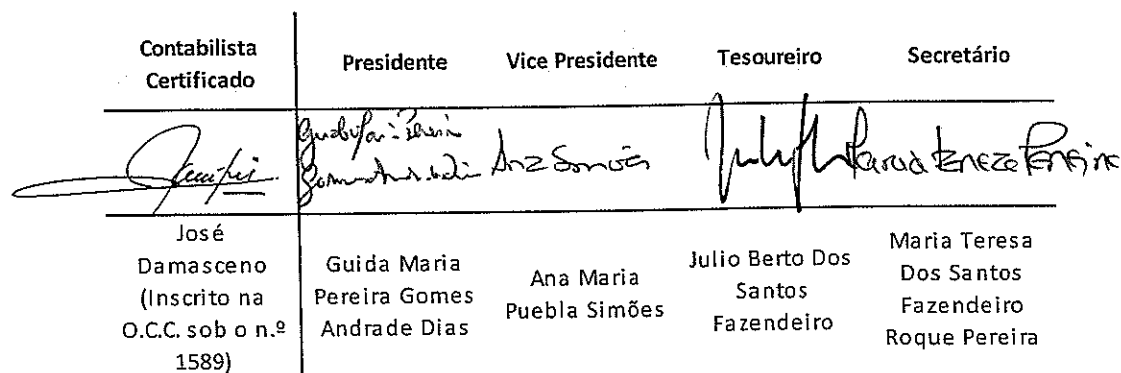 Contabilista
Certificado
Presidente
Vice Presidente
Tesoureiro
Secretário
Ana Simões
Maria Teresa Pereira
José
Damasceno
(Inscrito na
O.C.C. sob o n.º
1589)
Guida Maria
Pereira Gomes
Andrade Dias
Ana Maria
Puebla Simões
Julio Berto Dos
Santos
Fazendeiro
Maria Teresa
Dos Santos
Fazendeiro
Roque Pereira